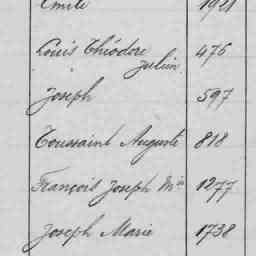 Emile 1921
Louis Théodore 475
Julien
Joseph 597
Toussaint Auguste 818
François Joseph Mie 1277
Joseph Marie 1738